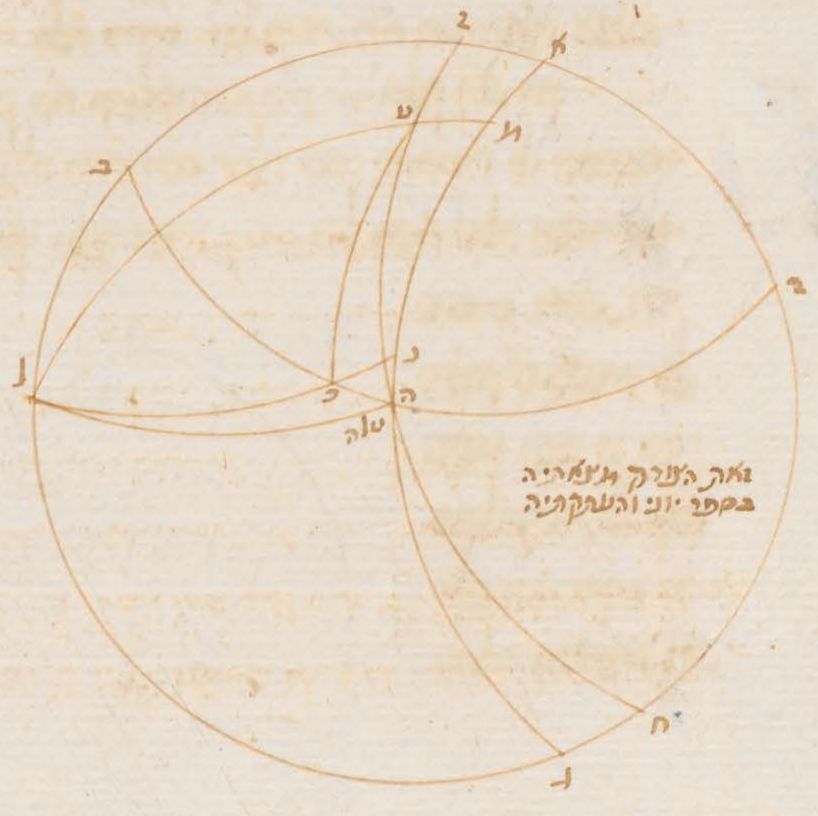 ז
א
ט
מ
ב
כ
ה
זאת הצורה מצאתיה
בספר יוני והעתקתיה
ח
ג